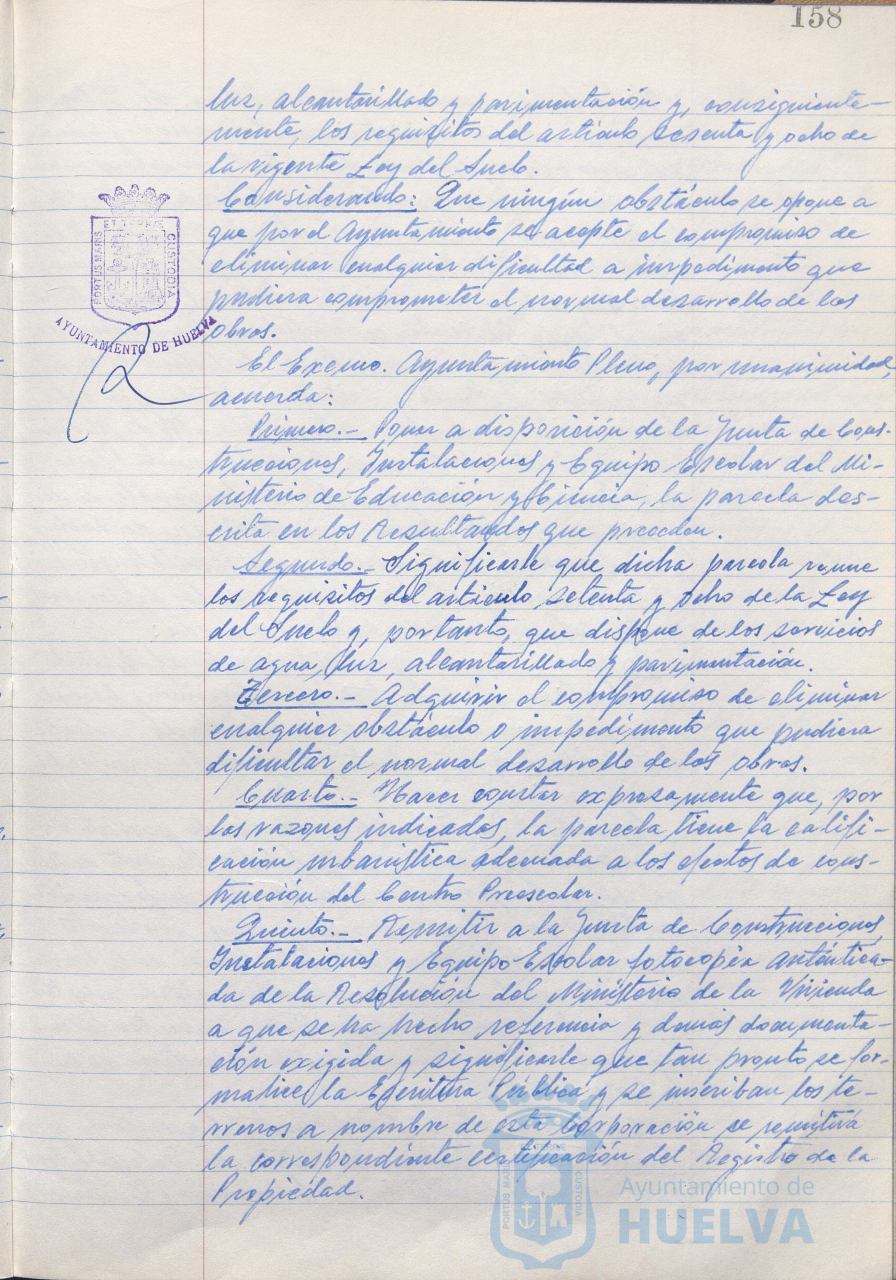 158
luz, alcantarillado y pavimentación y, consiguiente-
mente, los requisitos del artículo sesenta y ocho de
la vigente Ley del Suelo.
Considerando: Que ningún obstáculo se opone a
que por el Ayuntamiento se acepte el compromiso de
eliminar cualquier dificultad a impedimento que
pudiera comprometer el normal desarrollo de las
obras.
El Excmo. Ayuntamiento Pleno, por unanimidad,
acuerda:
Primero.- Poner a disposición de la Junta de Cons-
trucciones, Instalaciones y Equipo Escolar del Mi-
nisterio de Educación y Ciencia, la parcela des-
crita en los Resultandos que preceden.
Segundo.- Significarle que dicha parcela reune
los requisitos del artículo setenta y ocho de la Ley
del Suelo y, por tanto, que dispone de los servicios
de agua, luz, alcantarillado y pavimentación.
Tercero.- Adquirir el compromiso de eliminar
cualquier obstáculo o impedimento que pudiera
dificultar el normal desarrollo de las obras.
Cuarto.- Hacer constar expresamente que, por
las razones indicadas, la parcela tiene la califi-
cación urbanística adecuada a los efectos de cons-
trucción del Centro Preescolar.
Quinto.- Remitir a la Junta de Construcciones,
Instalaciones y Equipo Escolar fotocopia autentica-
da de la Resolución del Ministerio de la Vivienda
a que se ha hecho referencia y demás documenta-
ción exigida y significarle que tan pronto se for-
malice la Escritura Pública y se inscriban los te-
rrenos a nombre de esta Corporación se remitirá
la correspondiente certificación del Registro de la
Propiedad.
PORTUS MARIS
ET TERRÆ
CUSTODIA
AYUNTAMIENTO DE HUELVA
PORTUS MARIS
CUSTODIA
Ayuntamiento de
HUELVA